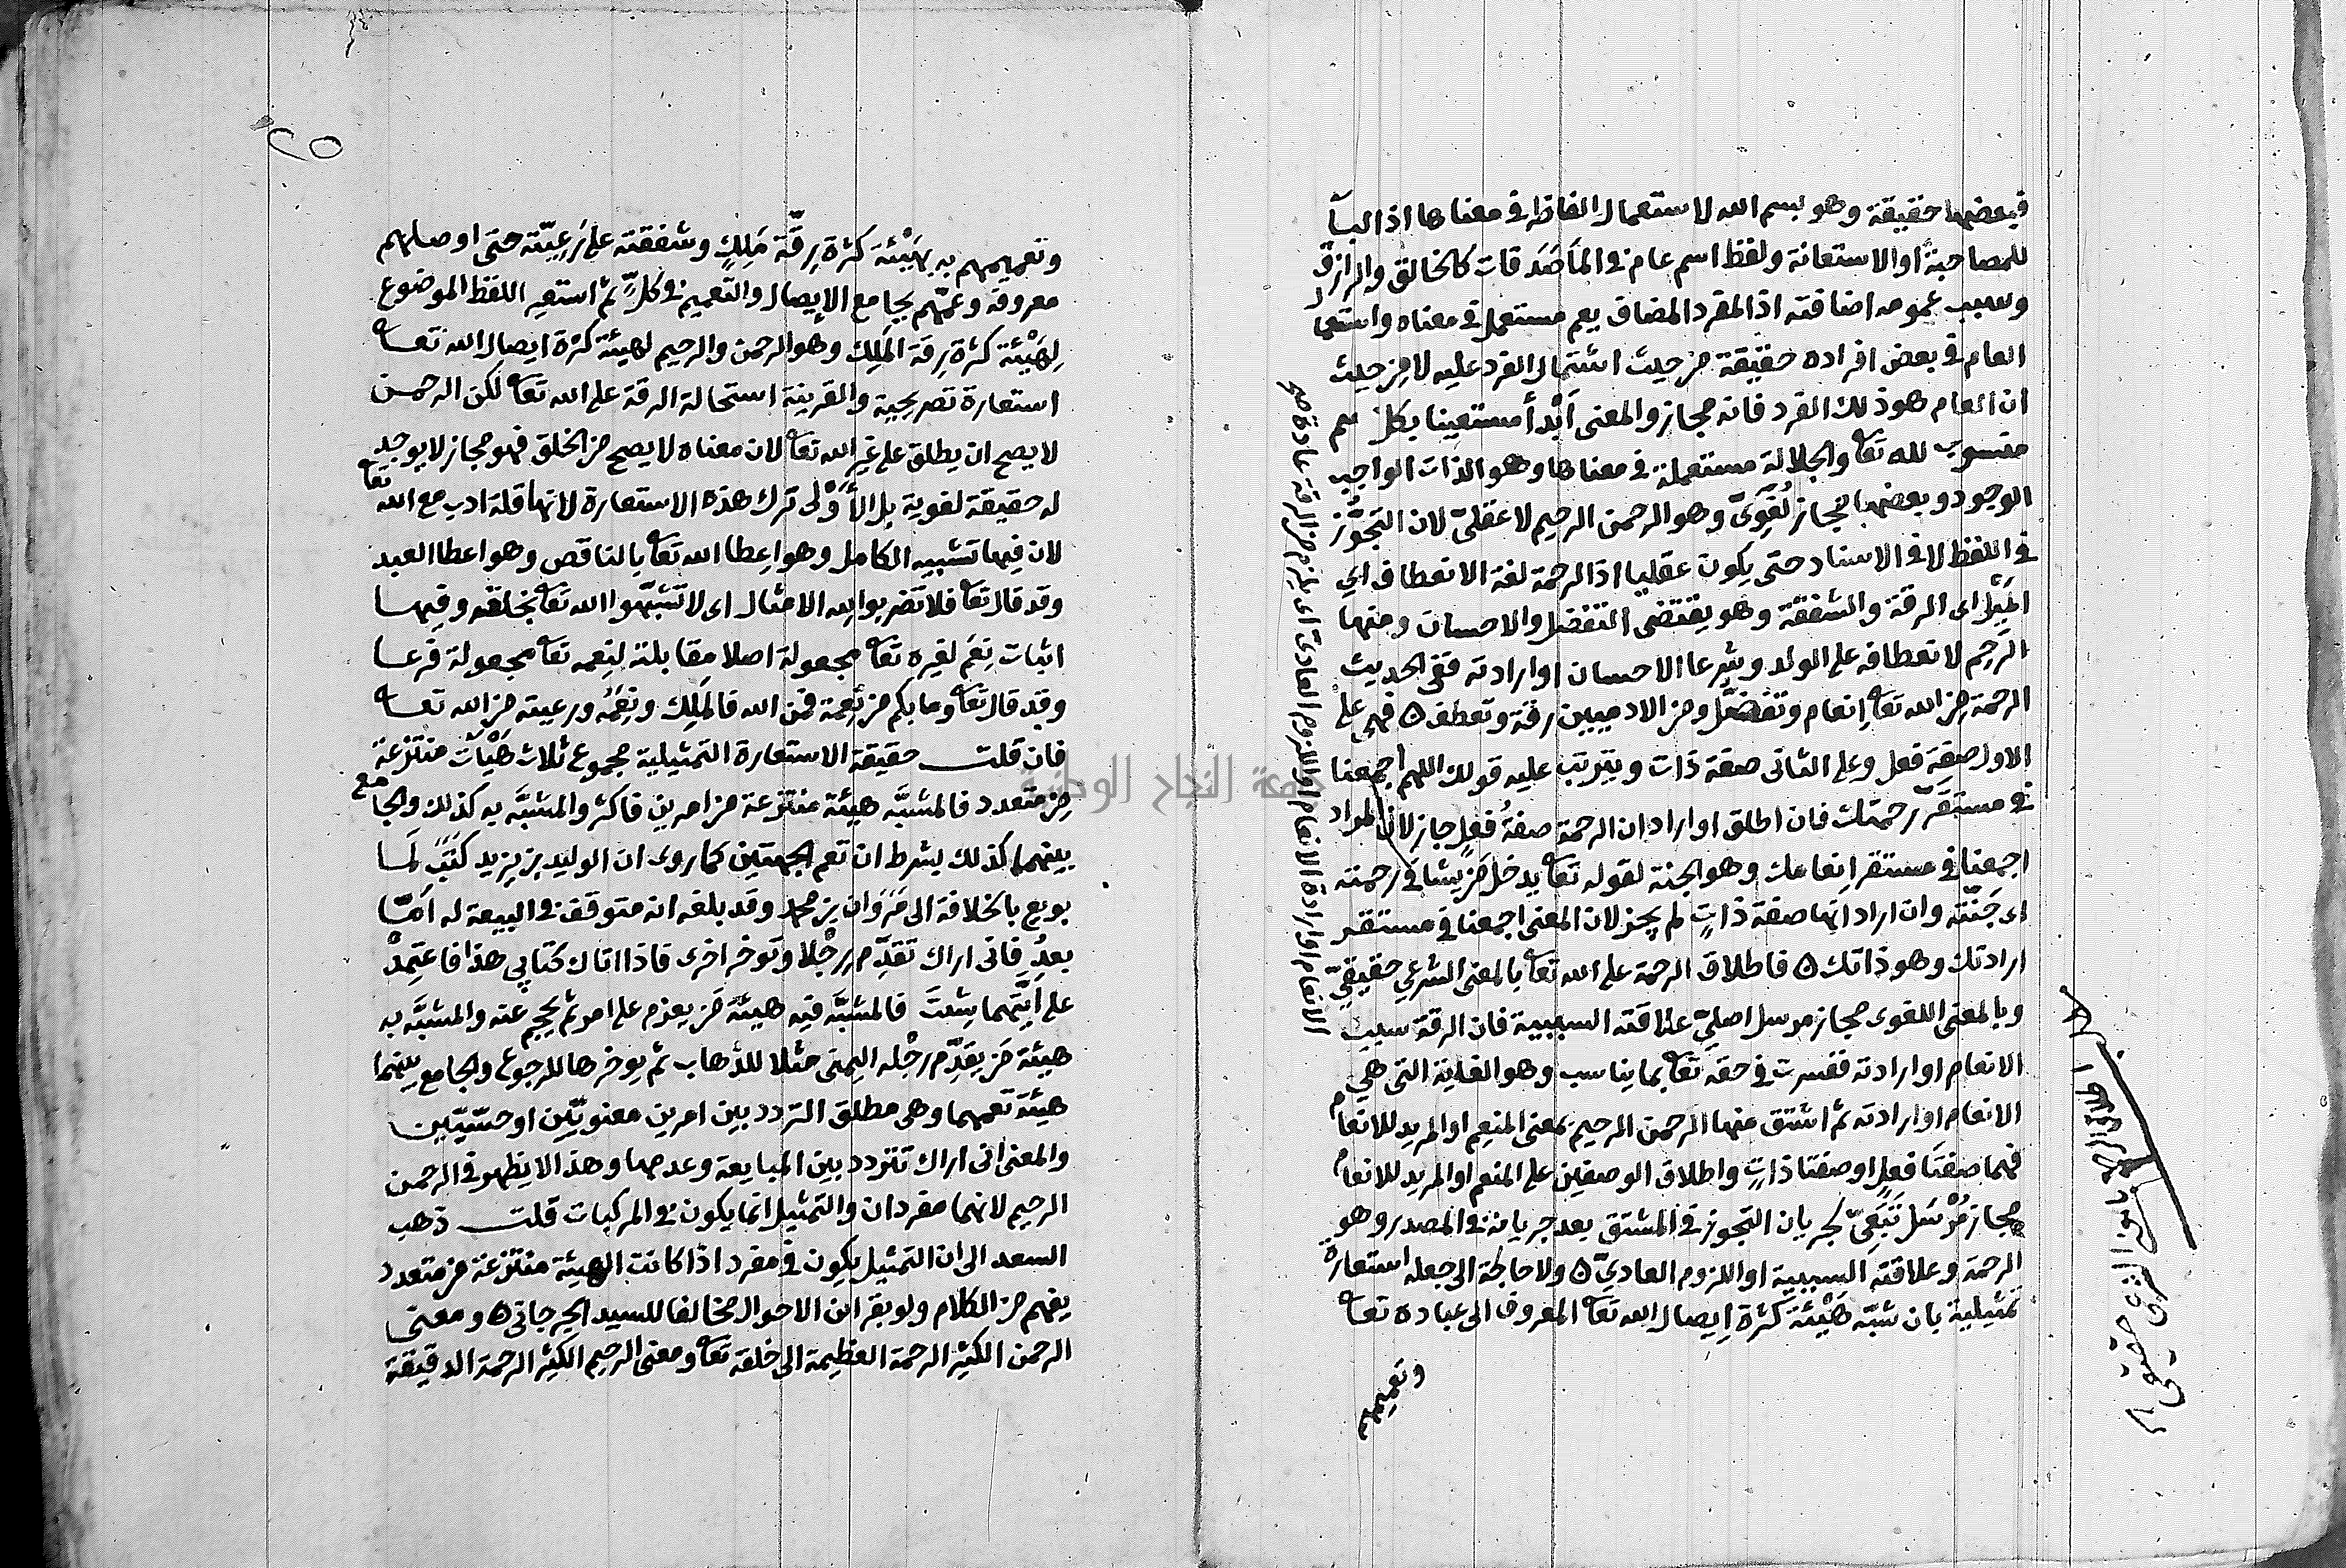 فبعضها حقيقة وهو بسم الله لاستعمال الفاظه في معناها اذ البآ
للمصاحبة او الاستعانة ولفظ اسم عام في المآصَدَقات كالخالق والرازق
وسبب عمومه اضافته اذ المفرد المضاف يعم مستعمل في معناه واستعما
العام في بعض افراده حقيقة من حيث اشتمال الفرد عليه لا مِن حيث
ان العام هو ذلك الفرد فانه مجاز والمعنى اَبْدأ مستعينا بكل اسم
منسوب لله تعا والجلالة مستعملة في معناها وهو الذات الواجب
الوجود وبعضها مجاز لُغَوِىّ وهو الرحمن الرحيم لا عقلىّ لان التجَوُّز
في اللفظ لا في الاسناد حتى يكون عقليا اذ الرحمة لغة الانعطاف اي
المَيْل اى الرقة والشفقة وهو يقتضي التفضل والاحسان ومنها
الرَحِم لانعطافه على الولد وشرعا الاحسان او ارادته ففي الحديث
الرحمة مِن الله تعا اِنعام وتفضّل ومن الادميين رقة وتعطف ه فهي على
الاول صفة فعل وعلى الثاني صفة ذات ويترتب عليه قولك اللهم اجمعنا
في مستقَرّ رحمتك فان اطلق او اراد ان الرحمة صفةُ فعلٍ جاز لان المراد
اجمعنا في مستقر اِنعامك وهو الجنة لقوله تعا يدخل مَن يشا في رحمته
اى جَنّته وان اراد انها صفة ذاتٍ لم يجز لان المعنى اجمعنا في مستقر
ارادتك وهو ذاتك ه فاطلاق الرحمة على الله تعا بالمعنى الشرعي حقيقيّ
وبالمعنى اللغوى مجاز مرسل اصليّ علاقته السببية فان الرقة سبب
الانعام او ارادته ففسرت في حقه تعا بما يناسب وهو الغاية التي هي
الانعام او ارادته ثم اشتق منها الرحمن الرحيم بمعنى المنعِم او المريد للانعام
فهما صفتَا فعلٍ او صفتا ذاتٍ واطلاق الوصفين على المنعم او المريد للانعام
مجاز مُرْسَل تَبَعِىّ لجريان التجوز في المشتق بعد جريانه في المصدر وهو
الرحمة وعلاقته السببية او اللزوم العاديّ ه ولا حاجة الى جعله استعارة
تمثيلية بان شبّه هَيْئة كثرة اِيصال الله تعا المعروف الى عباده تعا
وتعميمهم
الانعام او ارادة الانعام او اللزوم العادى اى يلزم من الرقة عادة صح
وتعميمهم به بهَيْئة كثرة رِقَّة مَلِكٍ وشفقته على رَعِيّته حتى اوصلهم
معروفه وعمّهم بجامع الايصال والتعميم في كلٍّ ثم استعير اللفظ الموضوع
لِهَيْئة كثرة رقة المَلِك وهو الرحمن والرحيم لهيئة كثرة ايصال الله تعا
استعارة تصريحية والقرينة استحالة الرقة على الله تعا لكن الرحمن
لا يصح ان يطلق على غير الله تعا لان معناه لا يصح من الخلق فهو مجاز لا يوجد
له حقيقة لغوية بل الأَوْلى ترك هذه الاستعارة لانها قلة ادب مع الله تعا
لان فيها تشبيه الكامل وهو اعِطا الله تعا بالناقص وهو اعطا العبد
وقد قال تعا فلا تضربوا لله الامثال اى لا تشبّهوا الله تعا بخلقه وفيها
اثبات نِعَم لغيره تعا مجعولة اصلا مقابلة لنِعمه تعا مجعولة فرعا
وقد قال تعا وما بكم من نعمة فمن الله فالمَلِك ونِعَمُه ورعيته من الله تعا
فان قلت حقيقة الاستعارة التمثيلية مجموع ثلاث هَيْآت منتزعة
مِن متعدد فالمشبَّه هيئة منتزعة من امرين فاكثر والمشبَّه به كذلك والجامع
بينهما كذلك بشرط ان تعم الجهتين كما روى ان الوليد بن يزيد كتب لمّا
بويع بالخلافة الى مَرْوان بن محمد وقد بلغه انه متوقف في البيعة له اَمّا
بعدُ فاني اراك تقدِّم رِجْلا وتؤخر اخرى فاذا اتاك كتابي هذا فاعتمِدْ
على اَيّهما شِئتَ فالمشبَّه فيه هيئة مَن يعزم على امر ثم يحجم عنه والمشبَّه به
هيئة مَن يقدِّم رِجْله اليمنى مثلا للذهاب ثم يؤخرها للرجوع والجامع بينهما
هيئة تعمهما وهي مطلق التردد بين امرين معنويّين او حسّيّين
والمعنى اني اراك تتردد بين المبايعة وعدمها وهذا لا يظهر في الرحمن
الرحيم لانهما مفردان والتمثيل انما يكون في المركبات قلت ذهب
السعد الى ان التمثيل يكون في مفرد اذا كانت الهيئة منتزعة من متعدد
يفهم من الكلام ولو بقراين الاحوال مخالفا للسيد الجرجاني ه ومعنى
الرحمن الكثير الرحمة العظيمة الى خلقه تعا ومعنى الرحيم الكثير الرحمة الدقيقة
جامعة النجاح الوطنية